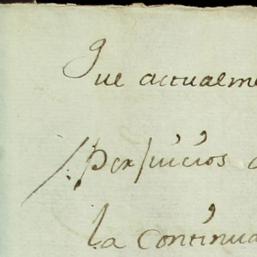 Que actualme
perjuicios
la continua